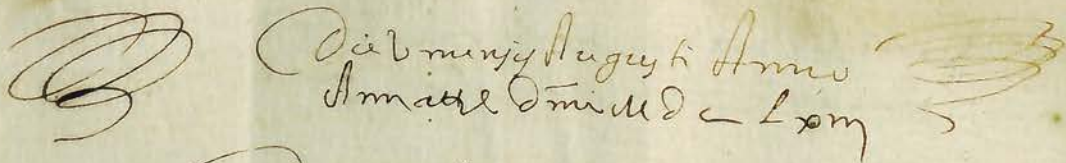 Die V mensis Augusti Anno
A nativitate dñi M D C Lxiii